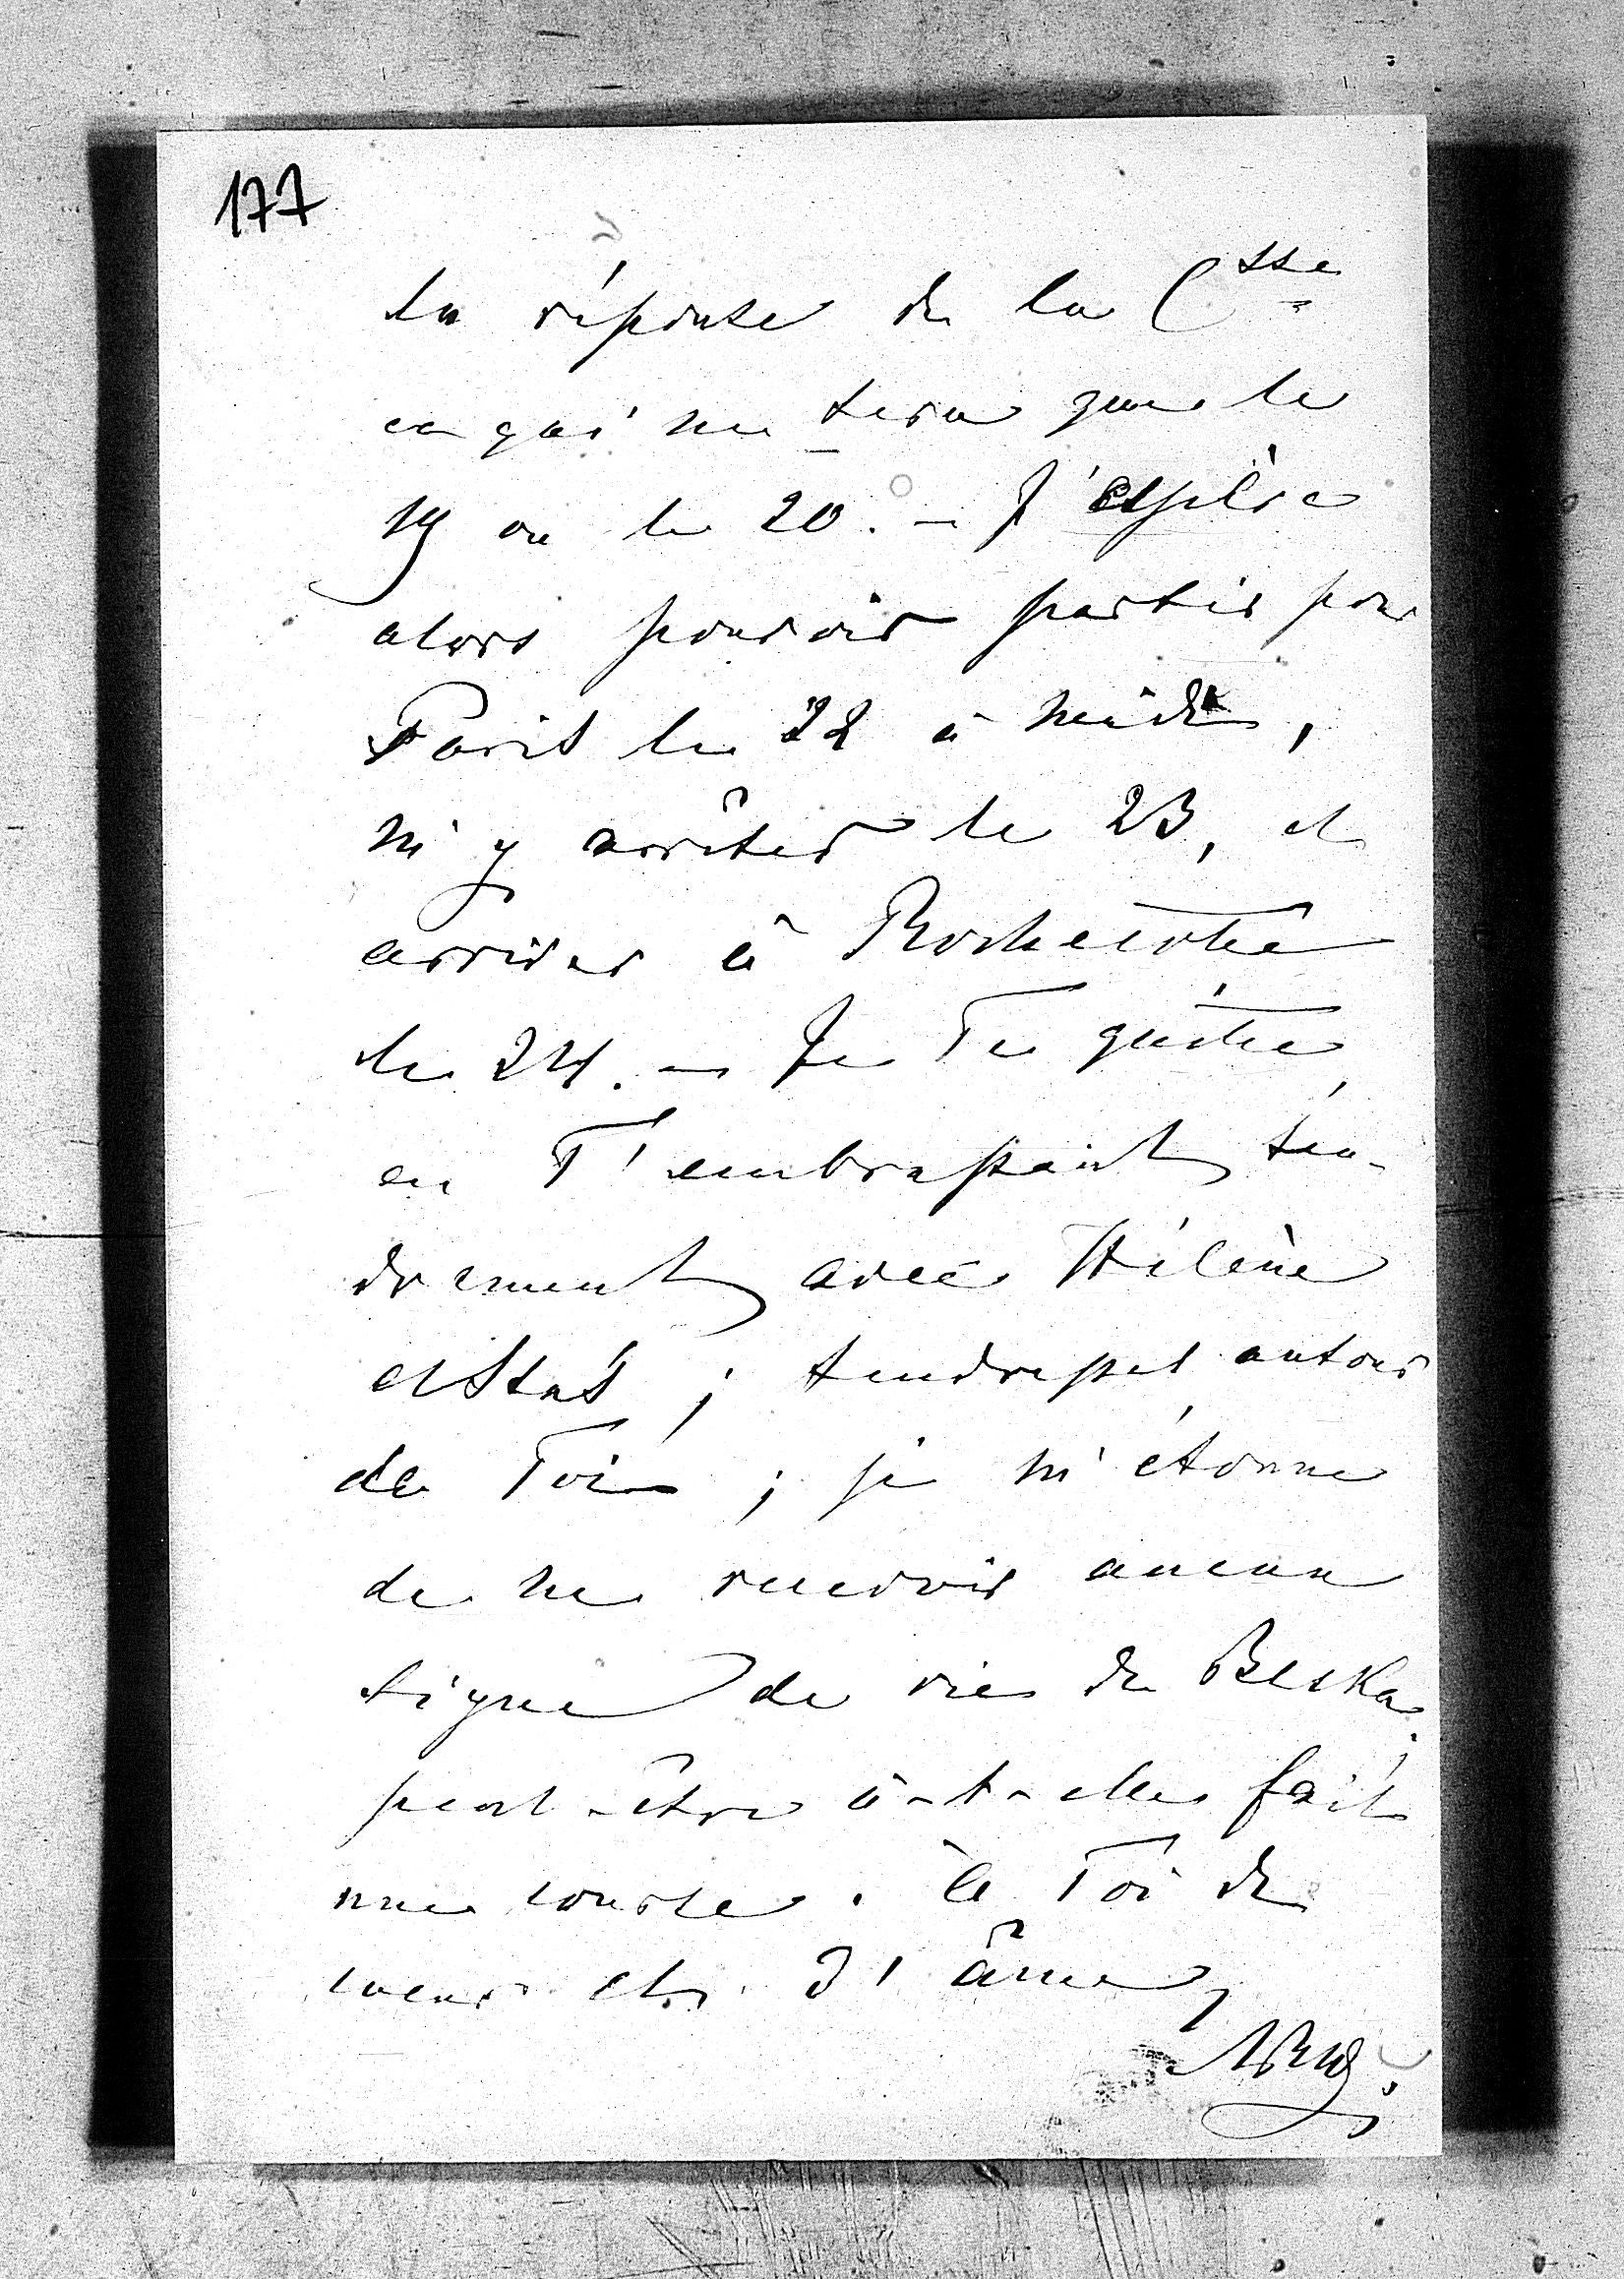 177
la réponse de la Csse
ce qui ne sera que le
19 ou le 20. – J'espère
alors pouvoir partir pour
Paris le 22 à midi,
m'y arrêter le 23, et
arriver à Rochecotte
le 24. – Je Te quitte,
en T'embrassant ten-
drement avec Hélène
et Stas; tendresses autour
de Toi; je m'étonne
de ne recevoir aucun
signe de vie de Biska.
peut-être a-t-elle fait
une course. à Toi de
coeur et d'âme,